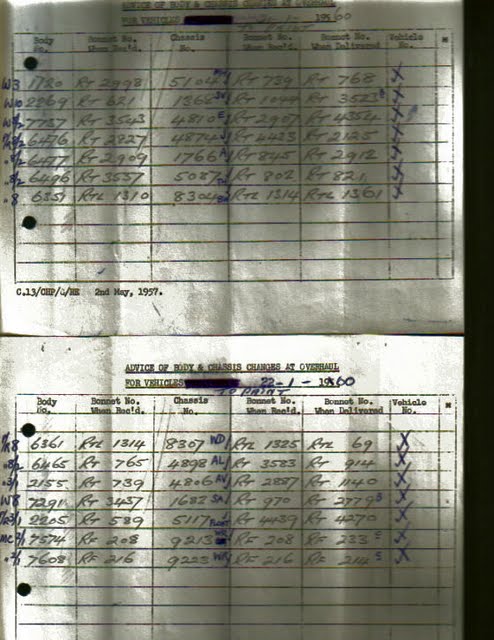 ADVICE OF BODY & CHASSIS CHANGES AT OVERHAUL
FOR VEHICLES 21-1- 1960
Body No. Bonnet No. When Rec'd. Chassis No. Bonnet No. When Rec'd. Bonnet No. When Delivered Vehicle No.
W3 1720 RT 2998 5104 RT 739 RT 768 X
W10 2269 RT 621 1365 RT 1044 RT 3523 B X
7737 RT 3543 4810 E RT 2907 RT 4352 X
6476 RT 2827 4874 RT 4423 RT 2125 X
8/2 6477 RT 2909 1766 A RT 845 RT 2912 X
8/2 6496 RT 3537 5087 RT 802 RT 821 X
" 8 6351 RTL 1310 8304 RTL 1314 RTL 1361 X
C.13/CHP/G/HE 2nd May, 1957.
ADVICE OF BODY & CHASSIS CHANGES AT OVERHAUL
FOR VEHICLES 22-1- 1960
TO PAINT
Body No. Bonnet No. When Rec'd. Chassis No. Bonnet No. When Rec'd. Bonnet No. When Delivered Vehicle No.
8 6361 RTL 1314 8307 WD RTL 1325 RTL 69 X
" 8/2 6465 RT 765 4898 AL RT 3583 RT 914 X
" 3/1 2155 RT 739 4806 AV RT 2887 RT 1140 X
W8 7291 RT 3437 1682 SA RT 970 RT 2779 B X
3/1 2205 RT 589 5117 FLOAT RT 4439 RT 4270 X
MC 2/1 7574 RF 208 9213 WR RF 208 RF 233 S X
" 2/1 7608 RF 216 9223 WR RF 216 RF 214 S X